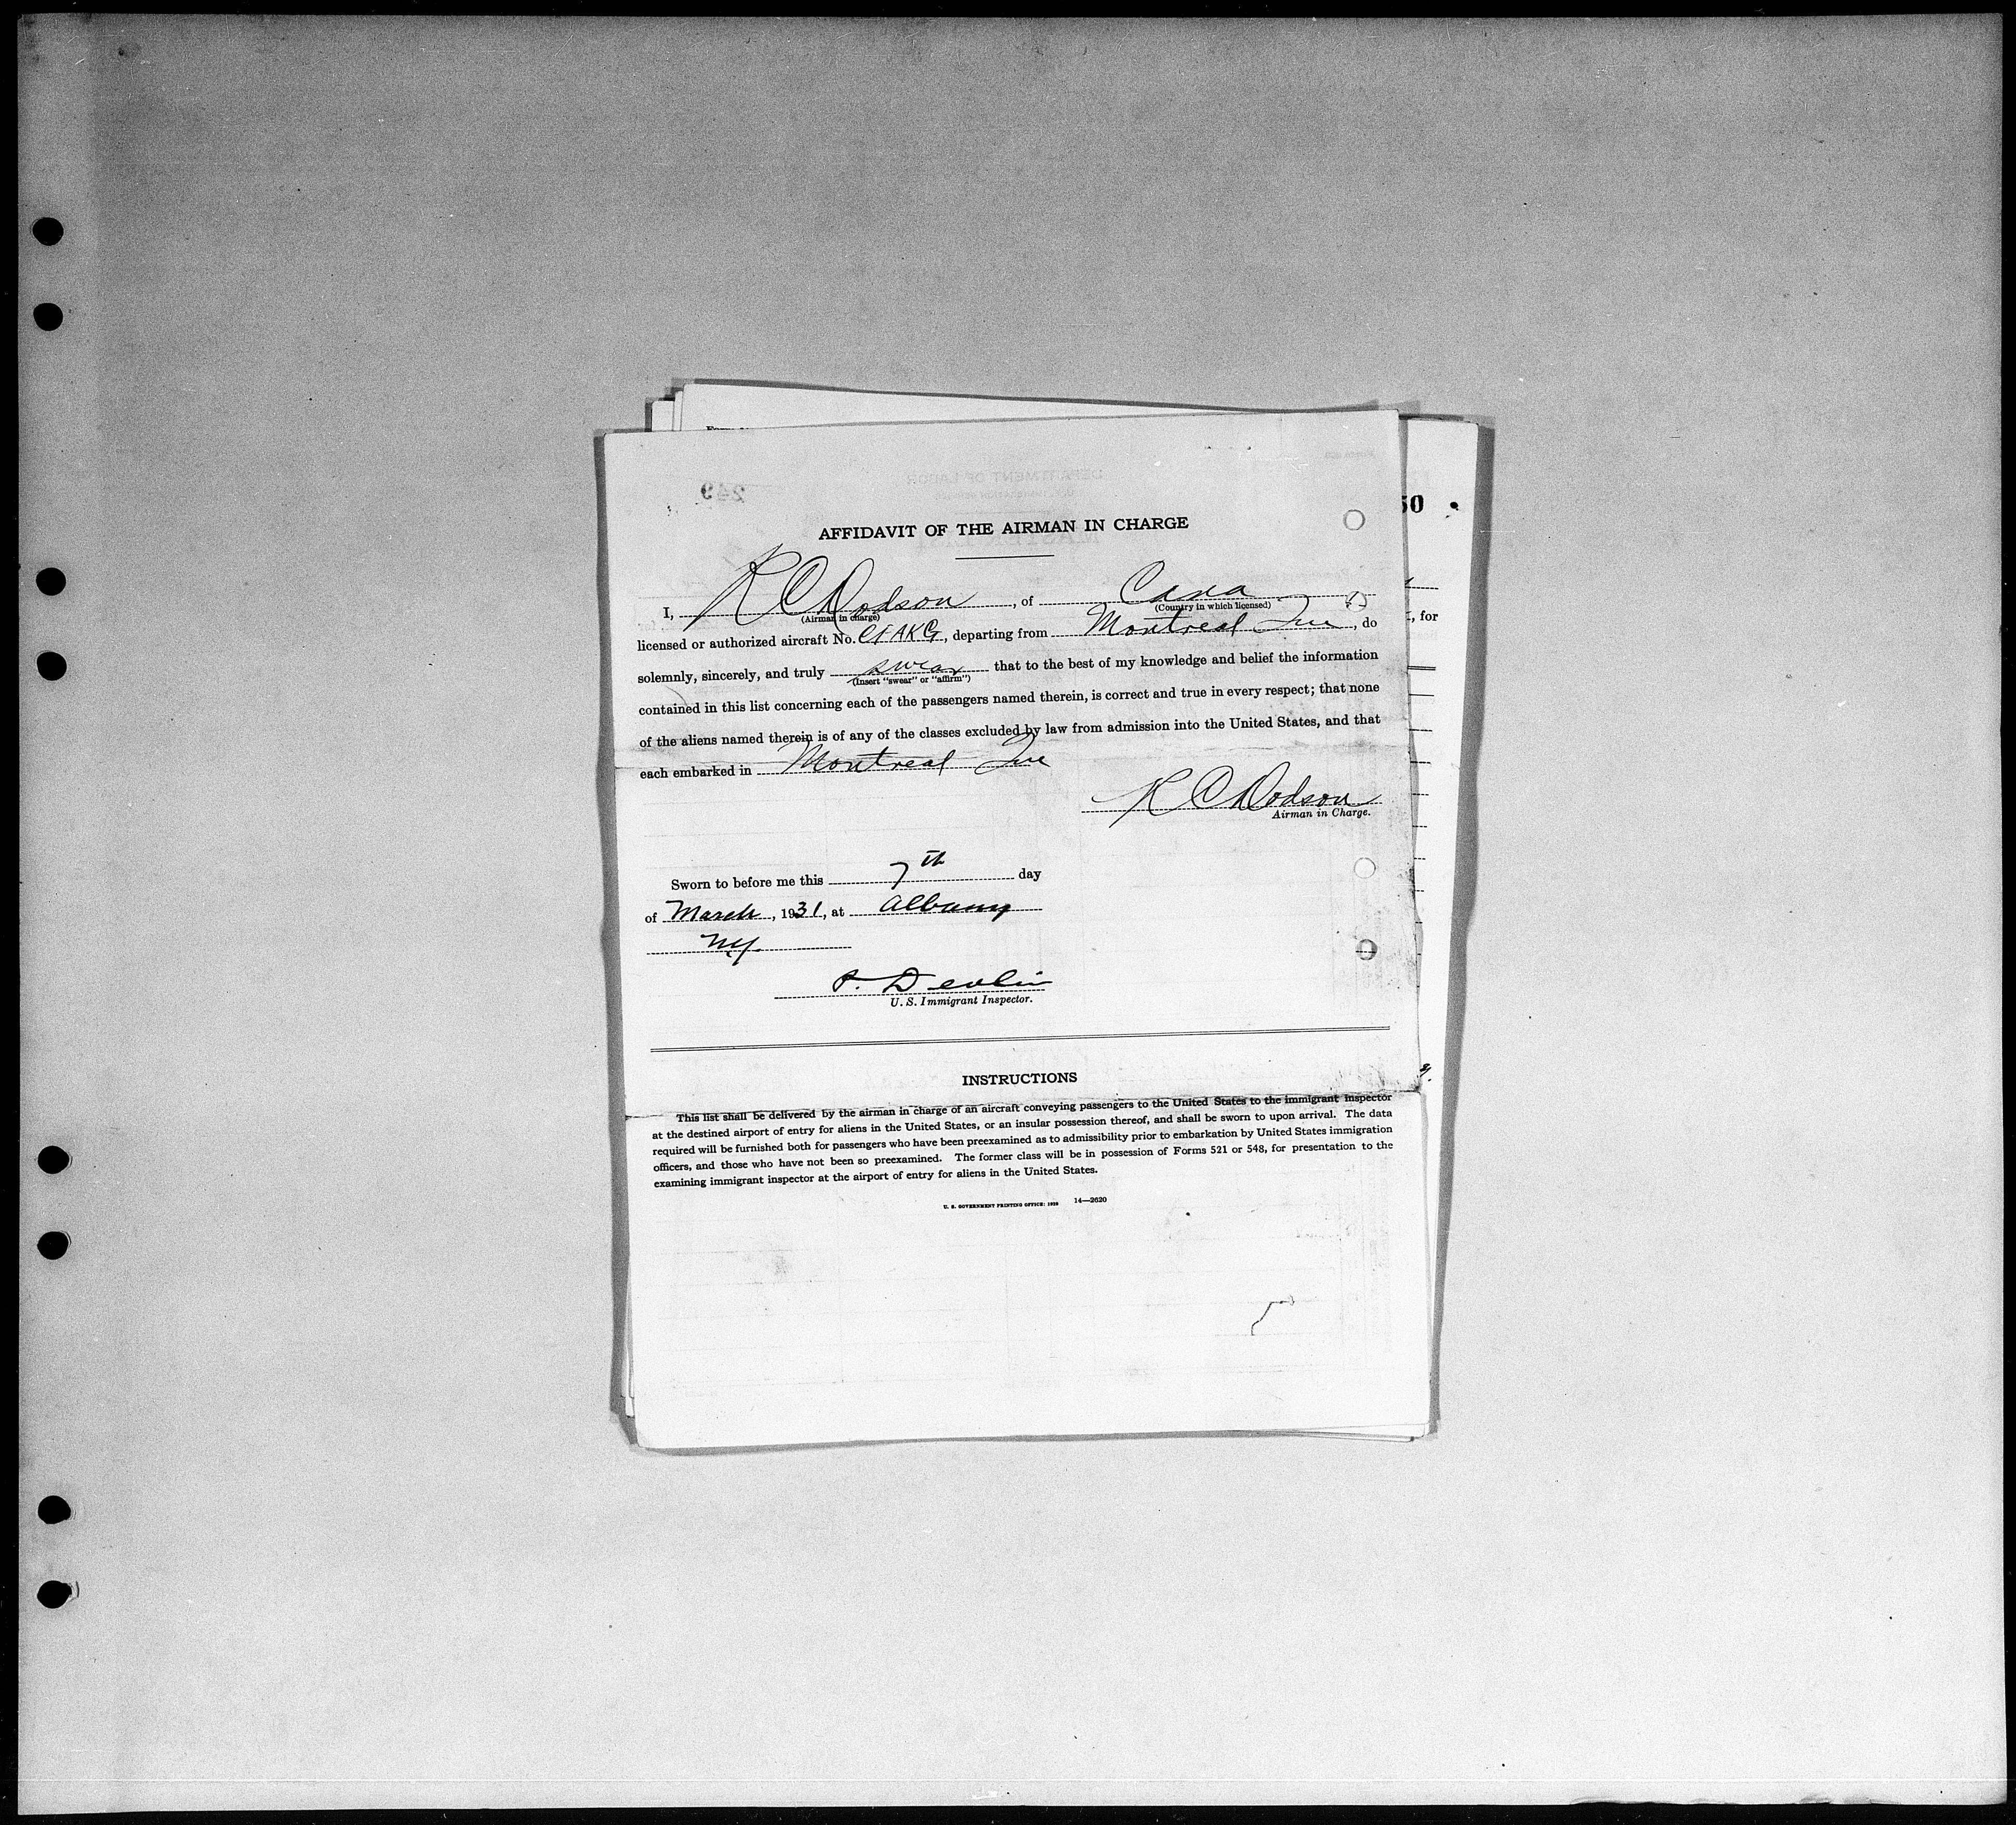 50
AFFIDAVIT OF THE AIRMAN IN CHARGE
I, R C Dodson, of Cana
(Airman in charge) (Country in which licensed)
licensed or authorized aircraft No. CFAKG, departing from Montreal Que, do
solemnly, sincerely, and truly swear that to the best of my knowledge and belief the information
(Insert "swear" or "affirm")
contained in this list concerning each of the passengers named therein, is correct and true in every respect; that none
of the aliens named therein is of any of the classes excluded by law from admission into the United States, and that
each embarked in Montreal Que
R C Dodson
Airman in Charge.
Sworn to before me this 7th day
of March, 1931, at Albany
NY.
P. Devlin
U. S. Immigrant Inspector.
INSTRUCTIONS
This list shall be delivered by the airman in charge of an aircraft conveying passengers to the United States to the immigrant inspector
at the destined airport of entry for aliens in the United States, or an insular possession thereof, and shall be sworn to upon arrival. The data
required will be furnished both for passengers who have been preexamined as to admissibility prior to embarkation by United States immigration
officers, and those who have not been so preexamined. The former class will be in possession of Forms 521 or 548, for presentation to the
examining immigrant inspector at the airport of entry for aliens in the United States.
U. S. GOVERNMENT PRINTING OFFICE: 14—2620
, for